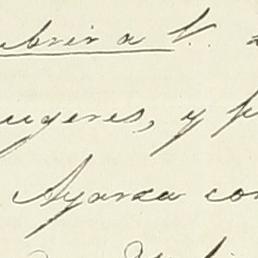 ubrir a V.
ugeres, y p
Ayarza con